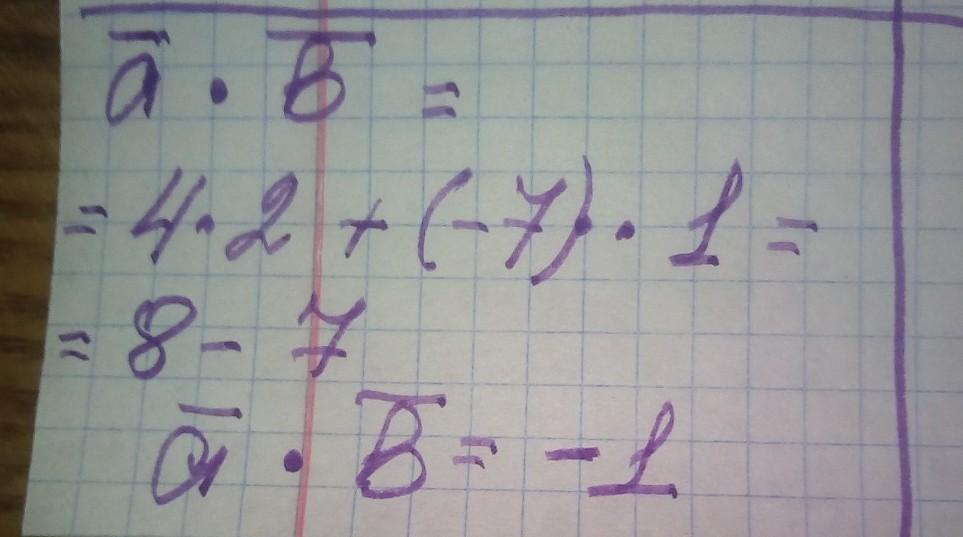 a̅ · B̅ =
= 4 · 2 + (-7) · 1 =
= 8 - 7
a̅ · B̅ = -1